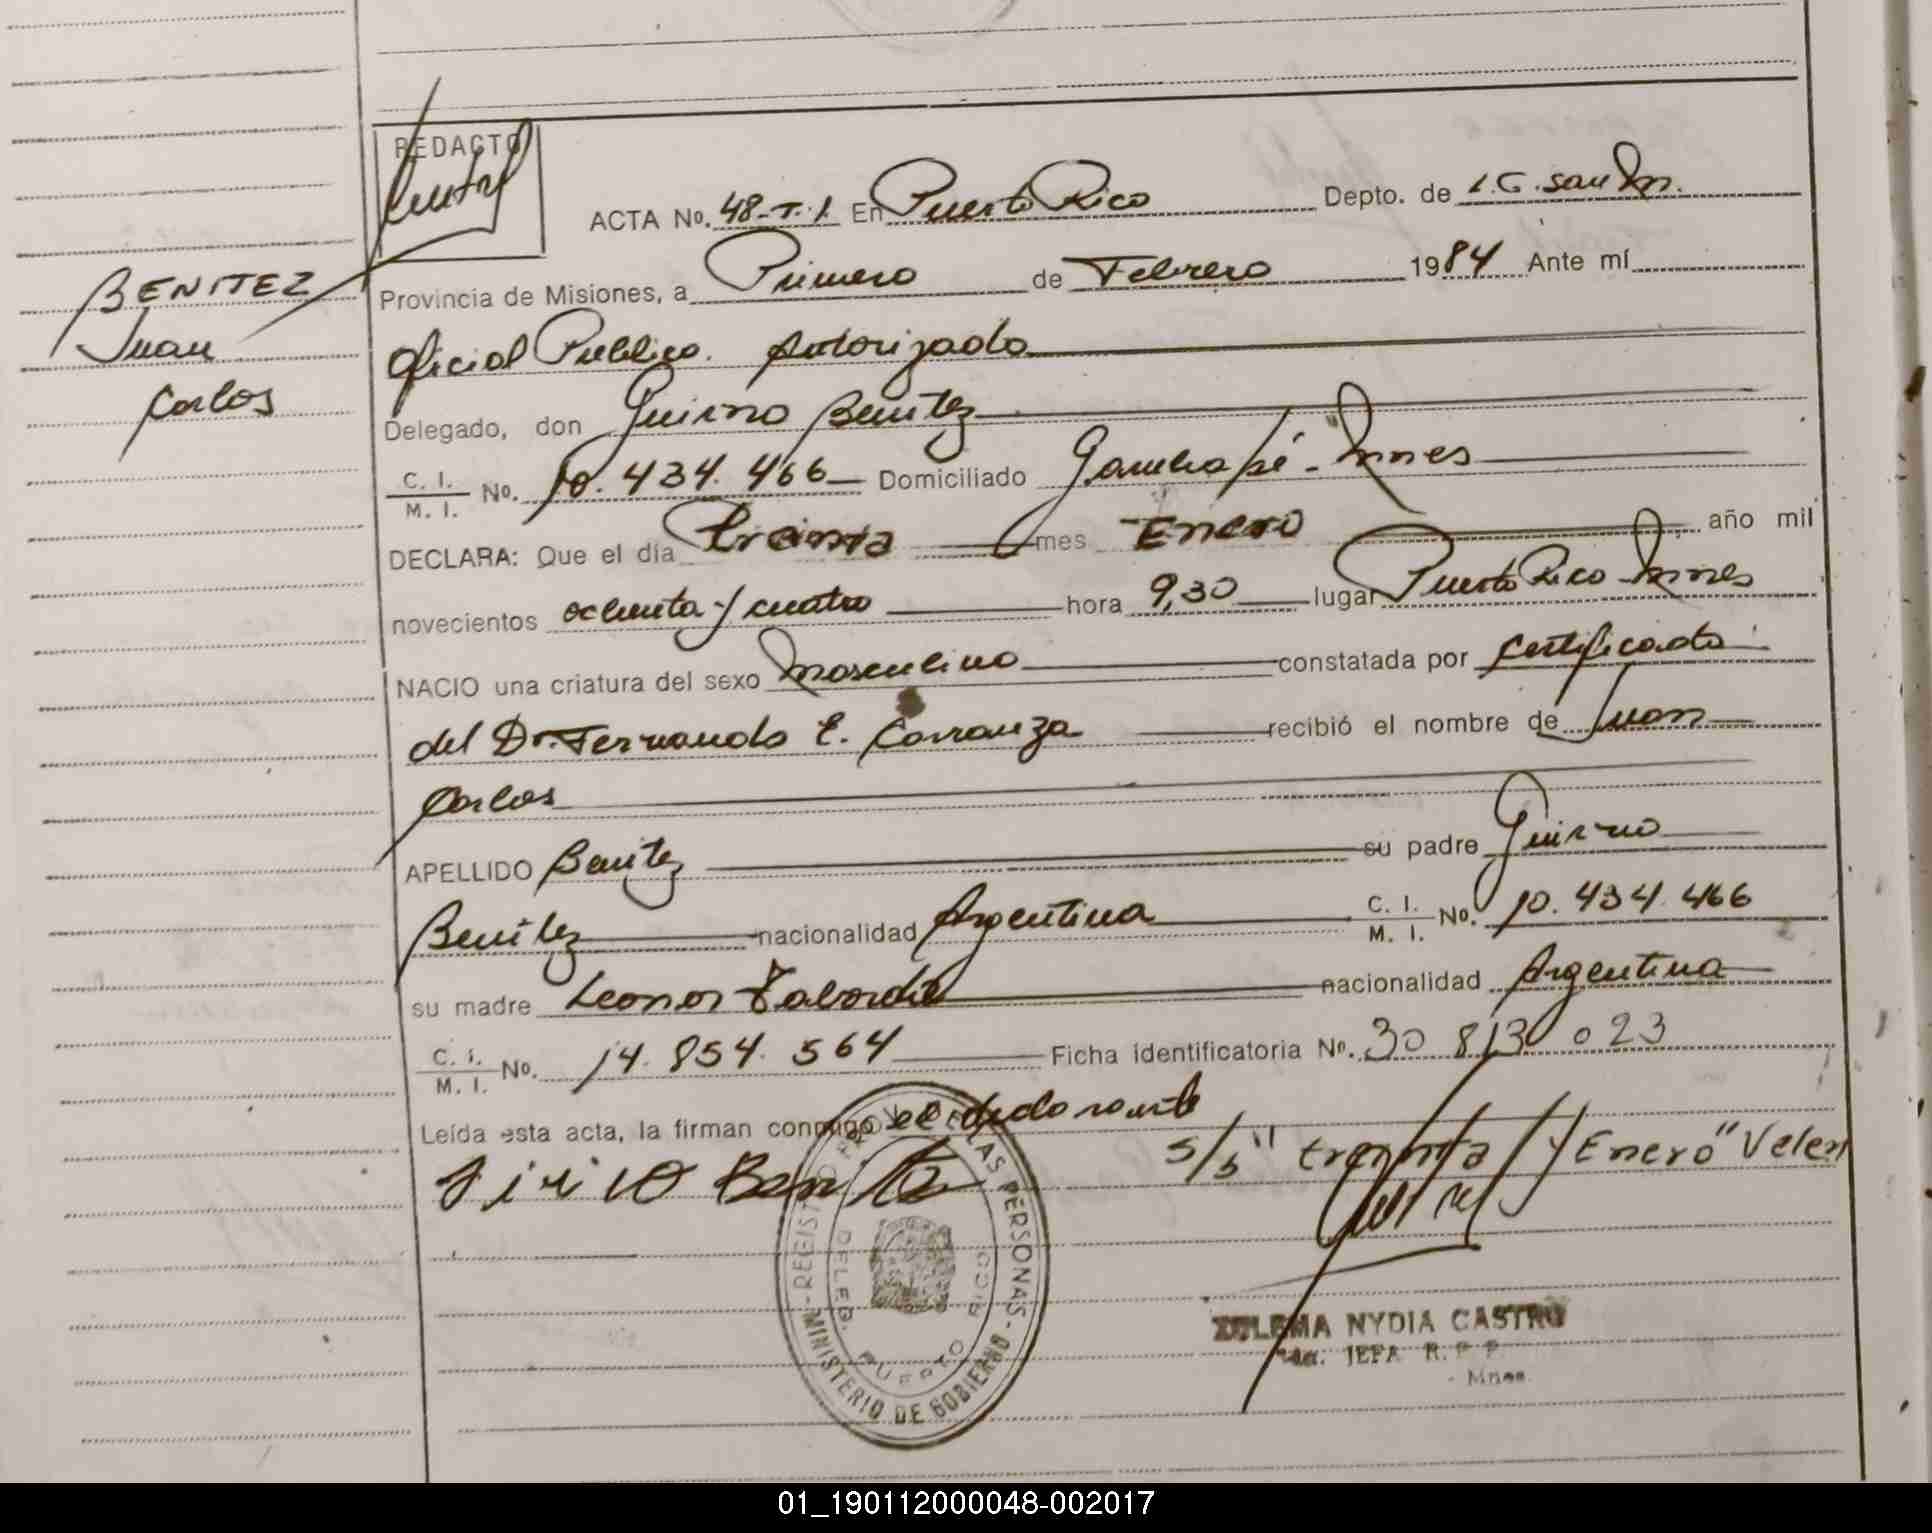 REDACTO
ACTA No. 48-T.I. En Puerto Rico Depto. de L.G. San M.
Provincia de Misiones, a Primero de Febrero 1984 Ante mí
Oficial Publico. Autorizado
Delegado, don Quirno Benitez
C. I. M. I. No. 10.434.466 Domiciliado Garuhapé - Mnes
DECLARA: Que el día treinta mes Enero año mil
novecientos ochenta y cuatro hora 9,30 lugar Puerto Rico Mnes
NACIO una criatura del sexo masculino constatada por Certificado
del Dr. Fernando E. Carranza recibió el nombre de Juan
Carlos
APELLIDO Benitez su padre Quirno
Benitez nacionalidad Argentina C. I. M. I. No. 10.434.466
su madre Leonor nacionalidad Argentina
C. I. M. I. No. 14.854.564 Ficha identificatoria No. 30 813 023
Leída esta acta, la firman conmigo el declarante
S/b "treinta / y Enero" Valen
BENITEZ
Juan
Carlos
REGISTRO PROV. DE LAS PERSONAS
MINISTERIO DE GOBIERNO
DELEG.
PUERTO RICO
ZULEMA NYDIA CASTRO
JEFA R. P. P.
Mnes.
01_190112000048-002017